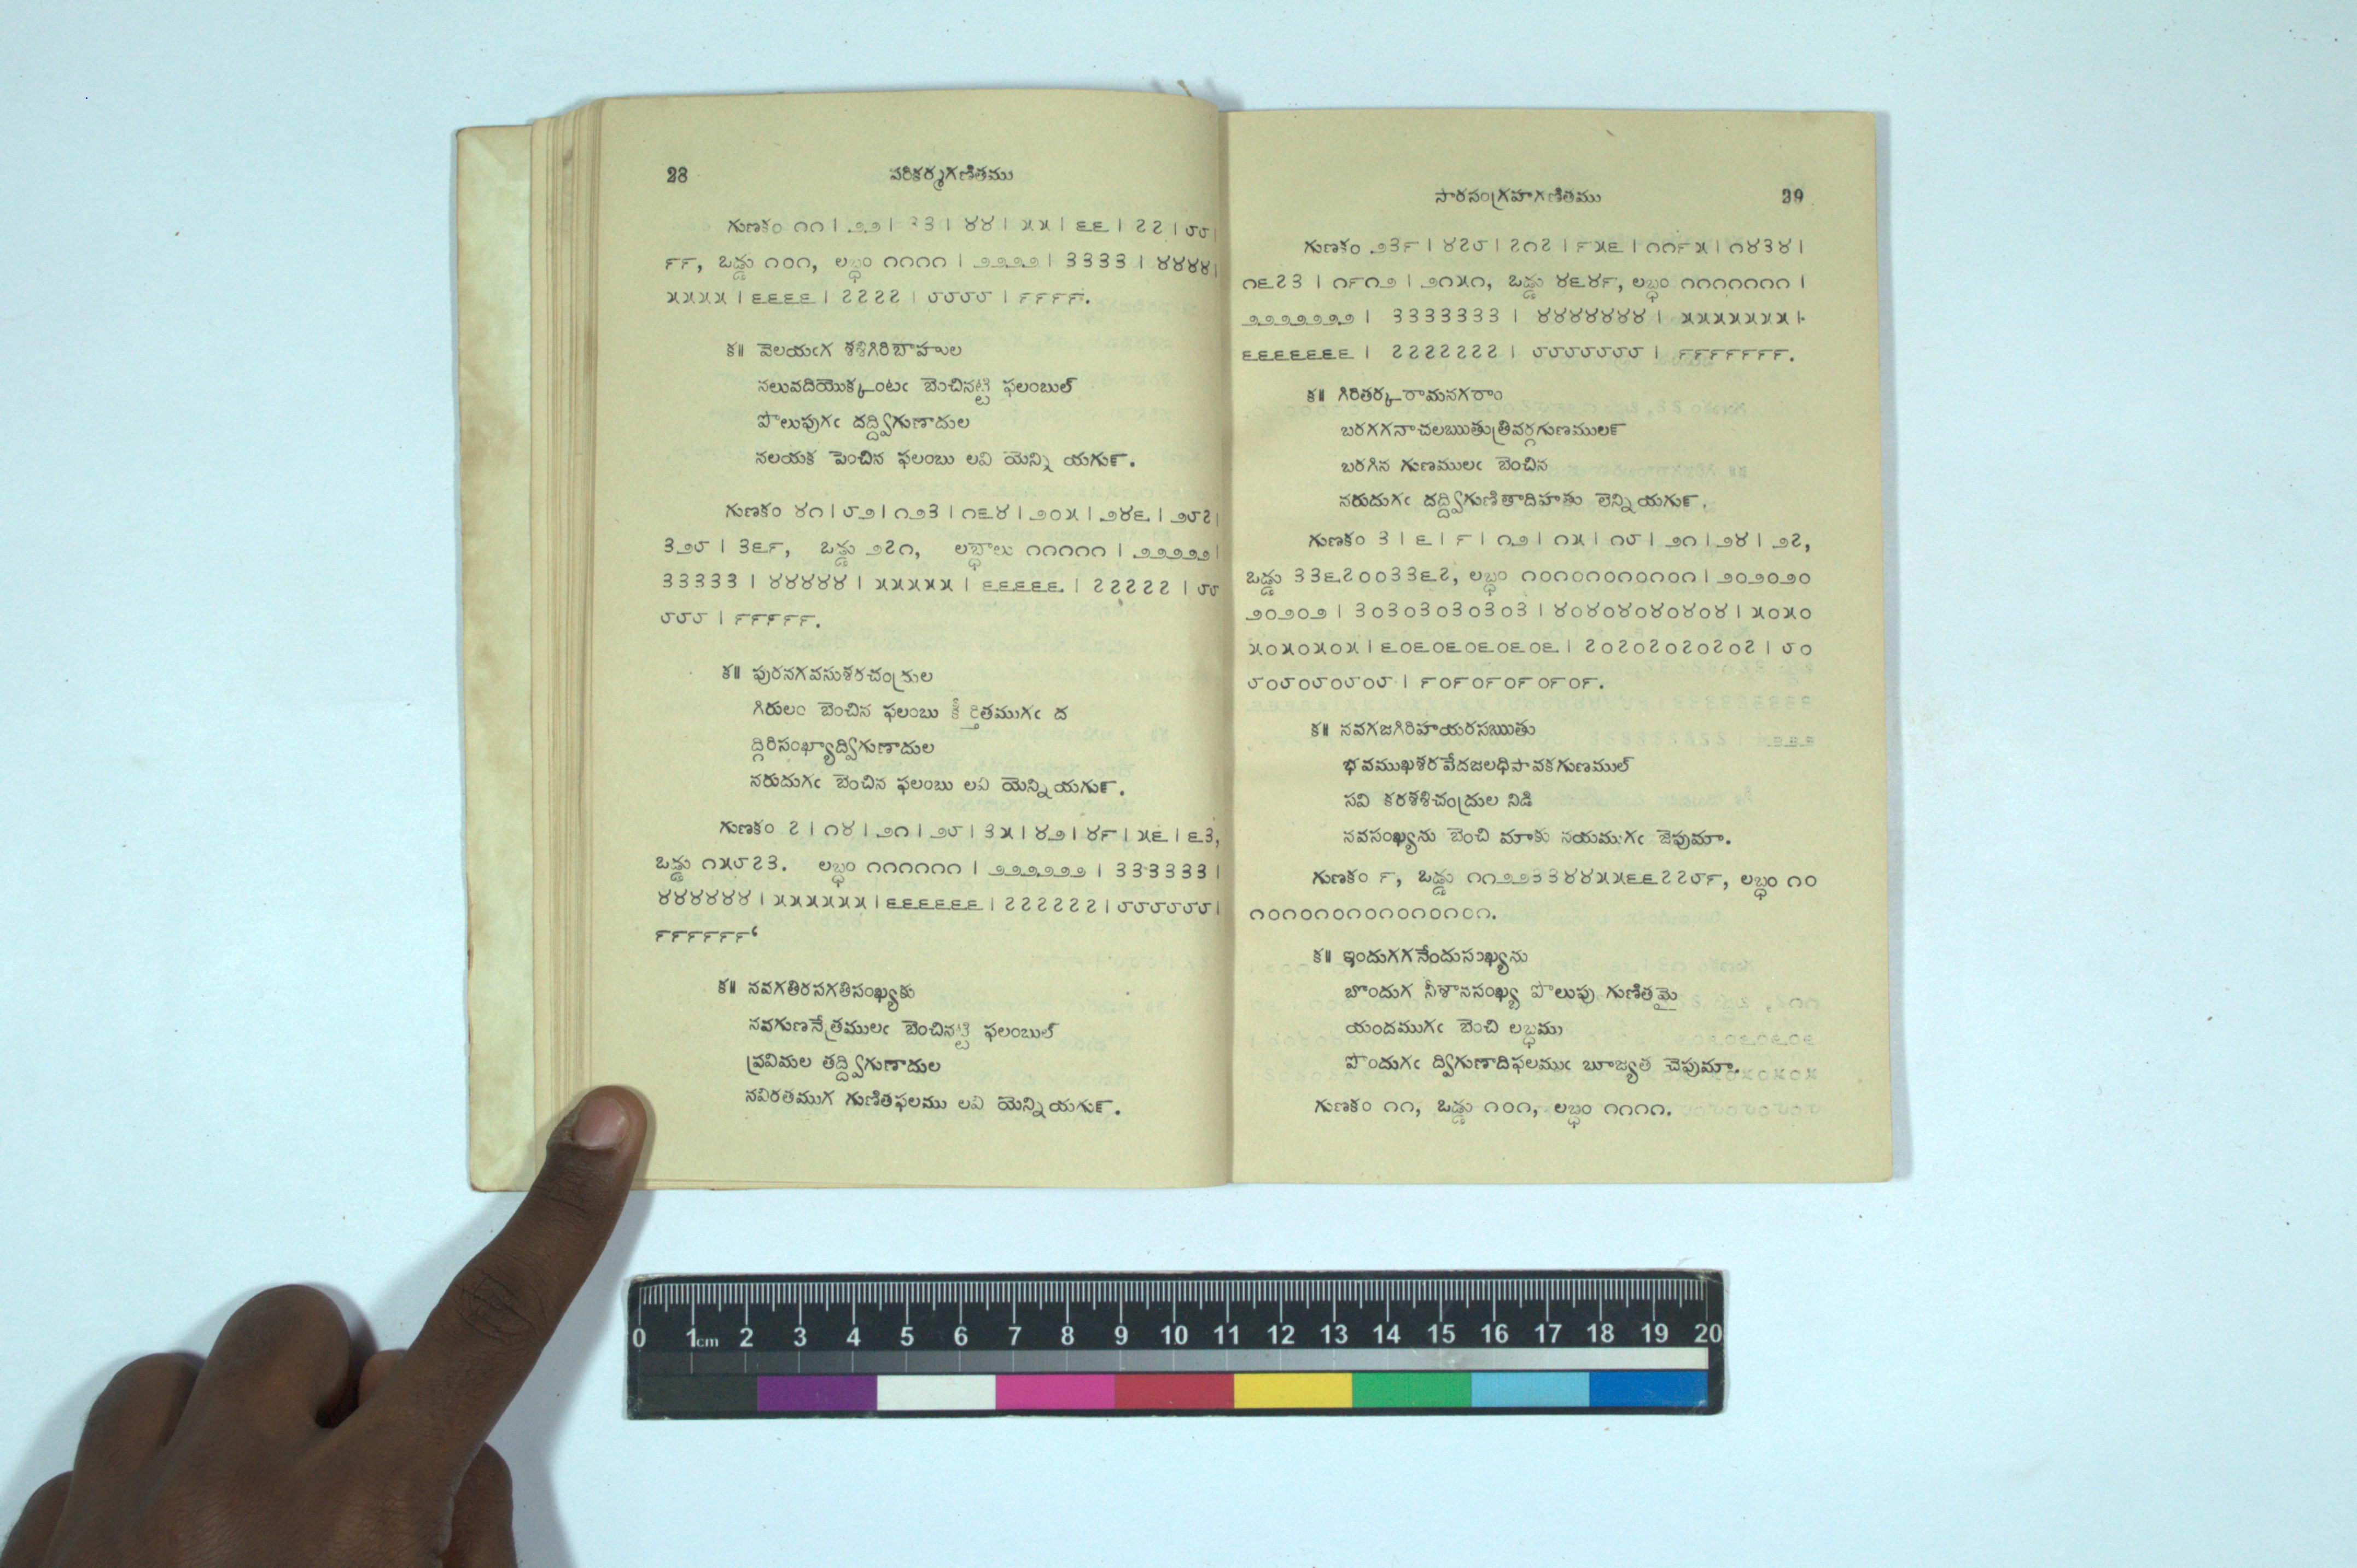 28 పరికర్మగణితము
గుణకం ౧౧ | ౨౨ | ౩౩ | ౪౪ | ౫౫ | ౬౬ | ౭౭ | ౮౮ |
౯౯, ఒడ్డు ౧౦౧, లబ్ధం ౧౧౧౧ | ౨౨౨౨ | ౩౩౩౩ | ౪౪౪౪ |
౫౫౫౫ | ౬౬౬౬ | ౭౭౭౭ | ౮౮౮౮ | ౯౯౯౯.
క॥ వెలయఁగ శశిగిరిబాహుల
నలువదియొక్కంటఁ బెంచినట్టి ఫలంబుల్
పొలుపుగఁ దద్ద్విగుణాదుల
నలయక పెంచిన ఫలంబు లవి యెన్ని యగున్.
గుణకం ౪౧ | ౮౨ | ౧౨౩ | ౧౬౪ | ౨౦౫ | ౨౪౬ | ౨౮౭ |
౩౨౮ | ౩౬౯, ఒడ్డు ౨౭౧, లబ్ధాలు ౧౧౧౧౧ | ౨౨౨౨౨ |
౩౩౩౩౩ | ౪౪౪౪౪ | ౫౫౫౫౫ | ౬౬౬౬౬ | ౭౭౭౭౭ | ౮౮
౮౮౮ | ౯౯౯౯౯.
క॥ పురనగవసుశరచంద్రుల
గిరులం బెంచిన ఫలంబు కీర్తితముగఁ ద
ద్గిరిసంఖ్యాద్విగుణాదుల
నరుదుగఁ బెంచిన ఫలంబు లవి యెన్నియగున్.
గుణకం ౭ | ౧౪ | ౨౧ | ౨౮ | ౩౫ | ౪౨ | ౪౯ | ౫౬ | ౬౩,
ఒడ్డు ౧౫౮౭౩. లబ్ధం ౧౧౧౧౧౧ | ౨౨౨౨౨౨ | ౩౩౩౩౩౩ |
౪౪౪౪౪౪ | ౫౫౫౫౫౫ | ౬౬౬౬౬౬ | ౭౭౭౭౭౭ | ౮౮౮౮౮౮ |
౯౯౯౯౯౯‘
క॥ నవగతిరసగతిసంఖ్యకు
నవగుణనేత్రములఁ బెంచినట్టి ఫలంబుల్
ప్రవిమల తద్ద్విగుణాదుల
నవిరతముగ గుణితఫలము లవి యెన్నియగున్.
సారసంగ్రహగణితము 29
గుణకం ౨౩౯ | ౪౭౮ | ౭౧౭ | ౯౫౬ | ౧౧౯౫ | ౧౪౩౪ |
౧౬౭౩ | ౧౯౧౨ | ౨౧౫౧, ఒడ్డు ౪౬౪౯, లబ్ధం ౧౧౧౧౧౧౧ |
౨౨౨౨౨౨౨ | ౩౩౩౩౩౩౩ | ౪౪౪౪౪౪౪ | ౫౫౫౫౫౫౫ |
౬౬౬౬౬౬౬ | ౭౭౭౭౭౭౭ | ౮౮౮౮౮౮౮ | ౯౯౯౯౯౯౯.
క॥ గిరితర్క రామనగరాం
బరగగనాచలఋతుత్రివర్గగుణములన్
బరగిన గుణములఁ బెంచిన
నరుదుగఁ దద్ద్విగుణితాదిహతు లెన్నియగున్.
గుణకం ౩ | ౬ | ౯ | ౧౨ | ౧౫ | ౧౮ | ౨౧ | ౨౪ | ౨౭,
ఒడ్డు ౩౩౬౭౦౦౩౩౬౭, లబ్ధం ౧౦౧౦౧౦౧౦౧౦౧ | ౨౦౨౦౨౦
౨౦౨౦౨ | ౩౦౩౦౩౦౩౦౩౦౩ | ౪౦౪౦౪౦౪౦౪౦౪ | ౫౦౫౦
౫౦౫౦౫౦౫ | ౬౦౬౦౬౦౬౦౬౦౬ | ౭౦౭౦౭౦౭౦౭౦౭ | ౮౦
౮౦౮౦౮౦౮౦౮ | ౯౦౯౦౯౦౯౦౯౦౯.
క॥ నవగజగిరిహయరసఋతు
భవముఖశరవేదజలధిపావకగుణముల్
సవి కరశశిచంద్రుల నిడి
నవసంఖ్యను బెంచి మాకు నయముగఁ జెపుమా.
గుణకం ౯, ఒడ్డు ౧౧౨౨౩౩౪౪౫౫౬౬౭౭౮౯, లబ్ధం ౧౦
౧౦౧౦౧౦౧౦౧౦౧౦౧౦౧.
క॥ ఇందుగగనేందుసంఖ్యను
బొందుగ నీశానసంఖ్య పొలుపు గుణితమై
యందముగఁ బెంచి లబ్ధము
పొందుగఁ ద్విగుణాదిఫలముఁ బూజ్యత చెపుమా.
గుణకం ౧౧, ఒడ్డు ౧౦౧, లబ్ధం ౧౧౧౧.
0 1cm 2 3 4 5 6 7 8 9 10 11 12 13 14 15 16 17 18 19 20